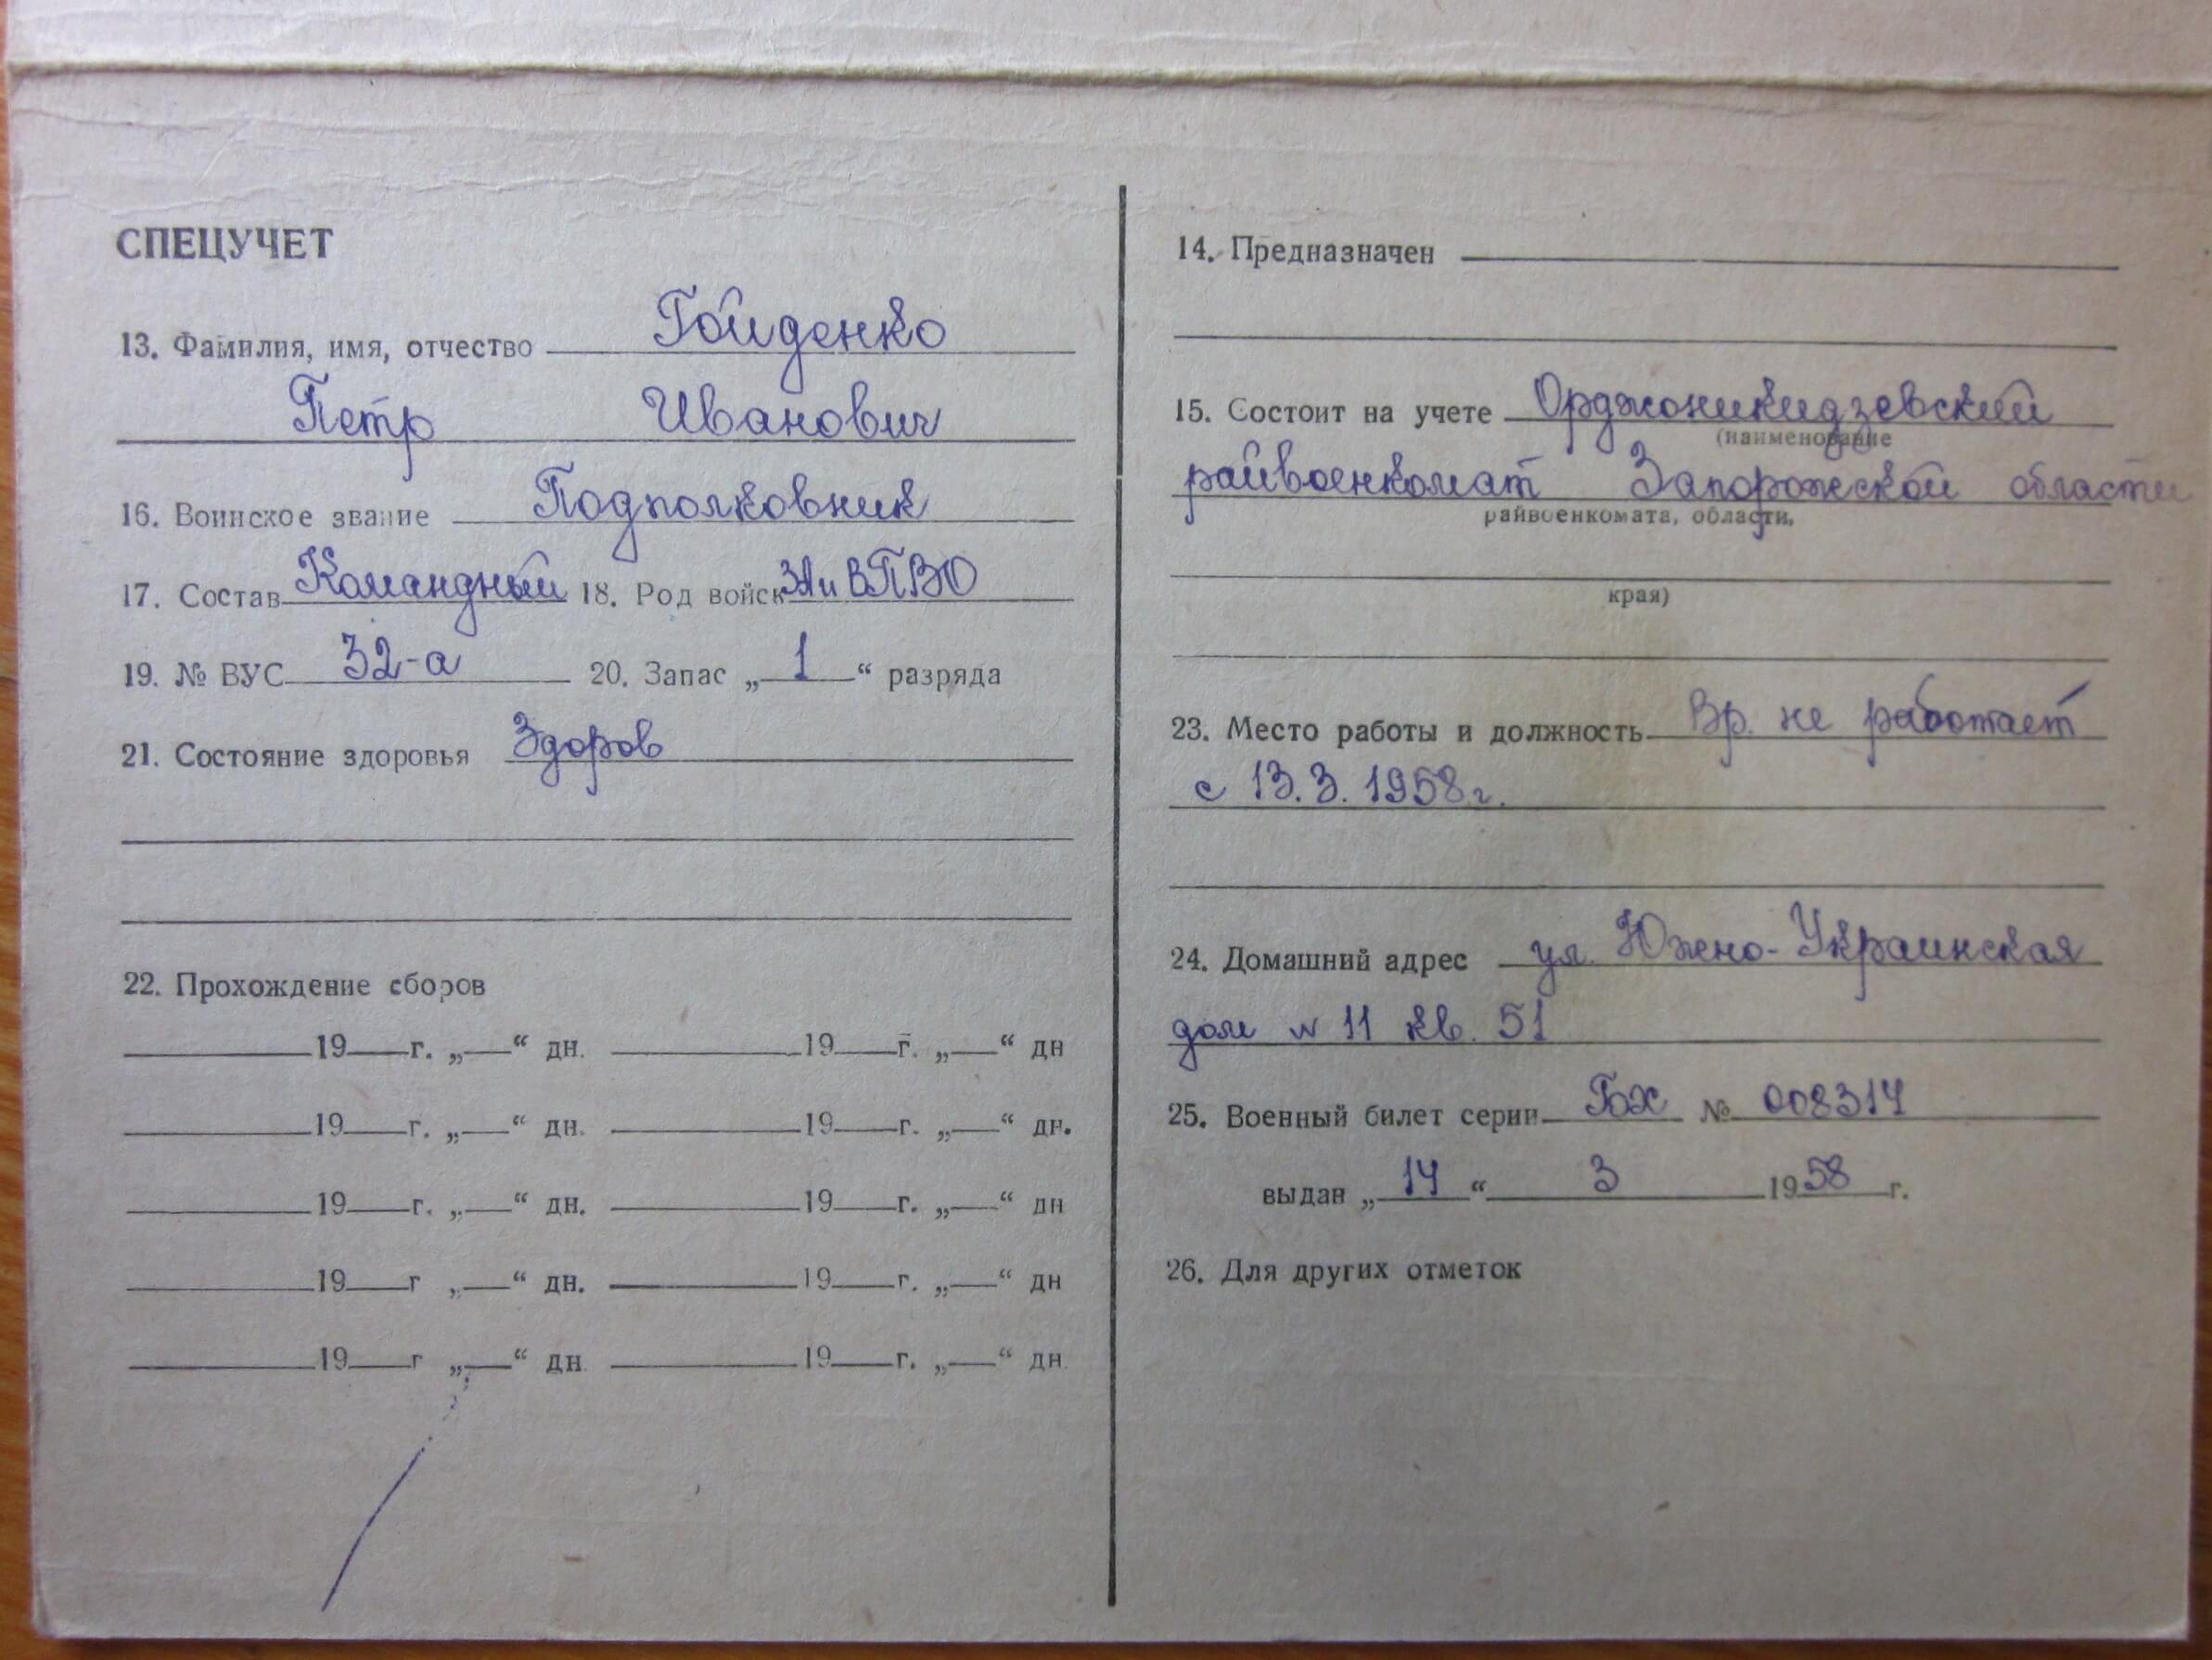 СПЕЦУЧЕТ
13. Фамилия, имя, отчество Гойденко
Петр Иванович
16. Воинское звание Подполковник
17. Состав Командный 18. Род войск ЗА и ВПВО
19. № ВУС 32-а 20. Запас „1“ разряда
21. Состояние здоровья Здоров
22. Прохождение сборов
19 г. „ “ дн. 19 г. „ “ дн
19 г. „ “ дн. 19 г. „ “ дн.
19 г. „ “ дн. 19 г. „ “ дн
19 г „ “ дн. 19 г. „ “ дн
19 г „ “ дн. 19 г. „ “ дн.
14. Предназначен
15. Состоит на учете Орджоникидзевский
(наименование
райвоенкомат Запорожской области
райвоенкомата, области,
края)
23. Место работы и должность Вр. не работает
с 13.3.1958г.
24. Домашний адрес ул. Южно-Украинская
дом № 11 кв. 51
25. Военный билет серии № 008314
выдан „14“ 3 1958 г.
26. Для других отметок